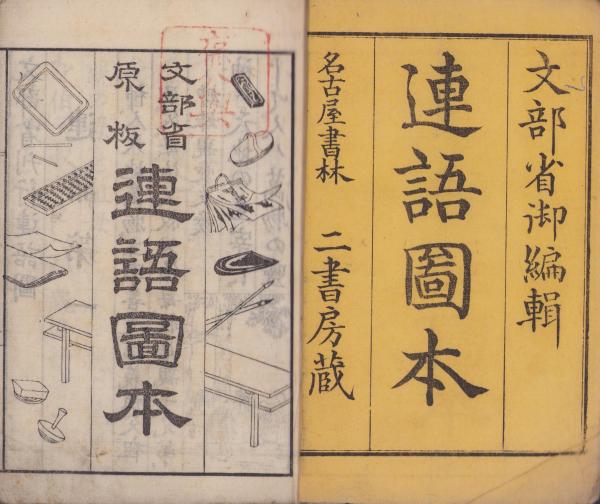 文部省御編輯
連語圖本
名古屋書林 二書房蔵
文部省
原板
連語圖本